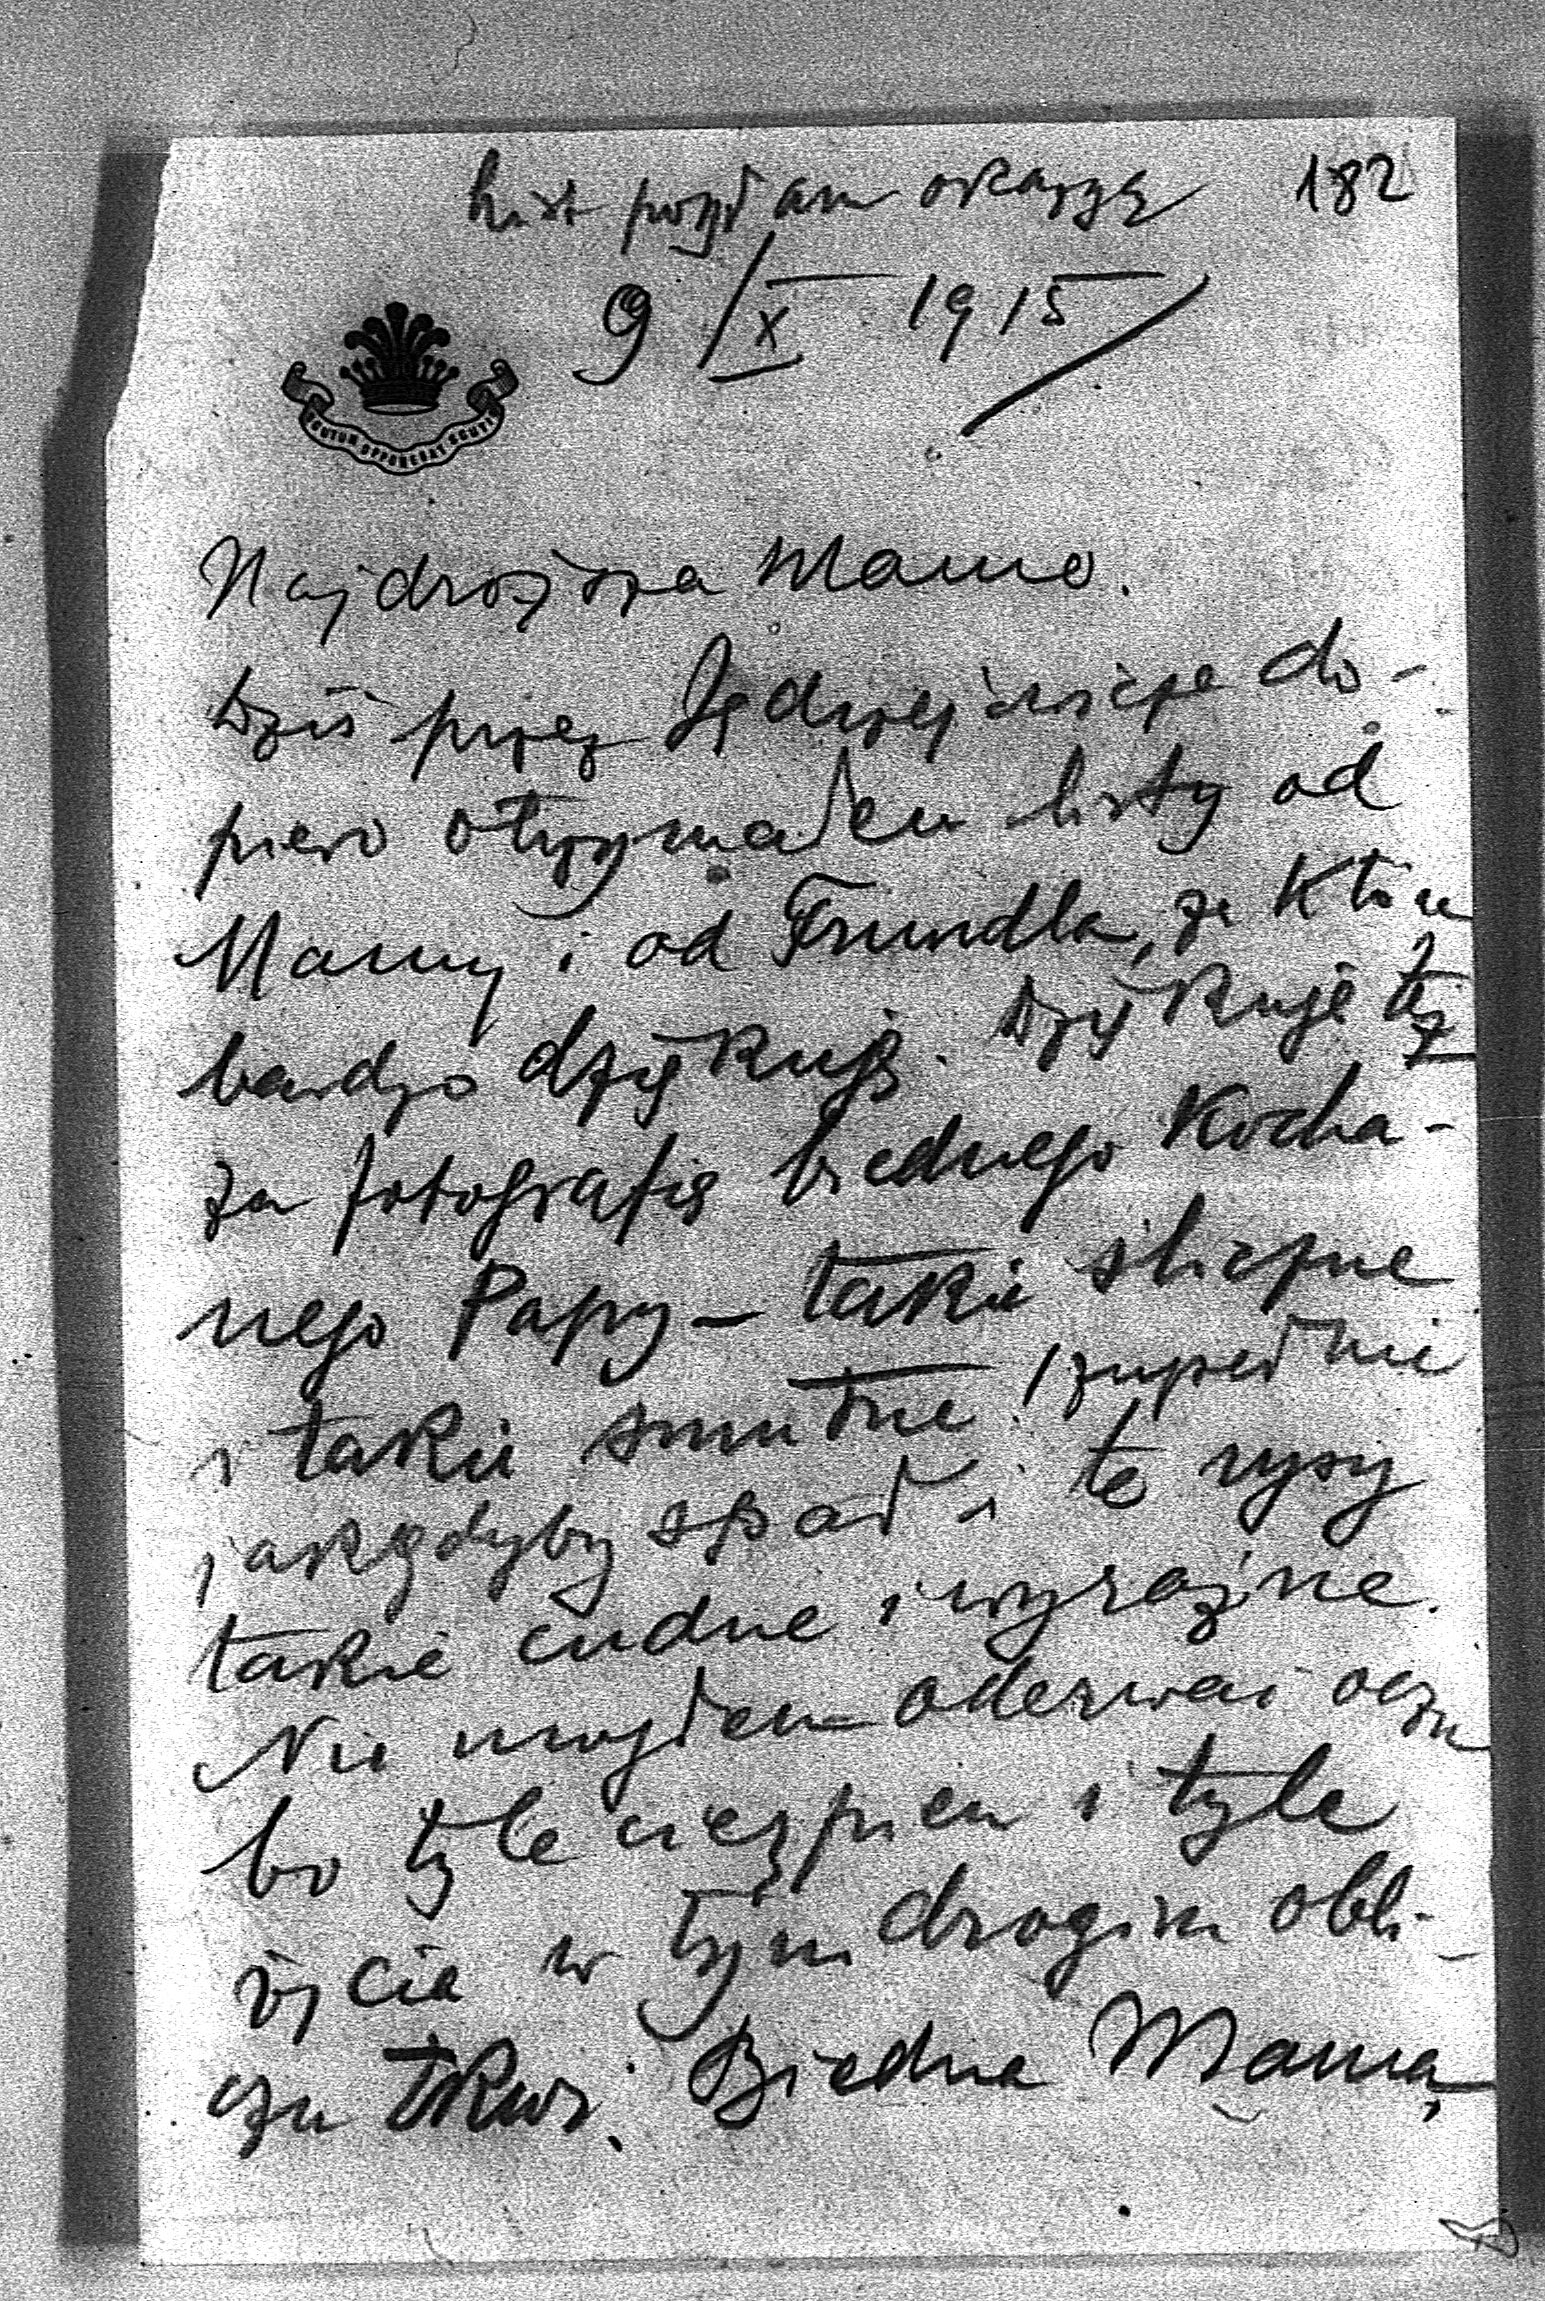 List posłam okazyą 182
9/X 1915
SCUTUM OPPONEBAT SCUTIS
Najdroższa Mamo.
Dziś przez Jędrzejowicza do-
piero otrzymałem listy od
Mamy i od Frundla, za które
bardzo dziękuję. Dziękuję też
za fotografię biednego Kocha-
nego Papy – takie śliczne
i takie smutne! zupełnie
jakgdyby spał i te rysy
takie cudne i wyraźne.
Nie mogłem oderwać oczu
bo tyle cierpień i tyle
życia w tym drogim obli-
czu tkwi. Biedna Mama,